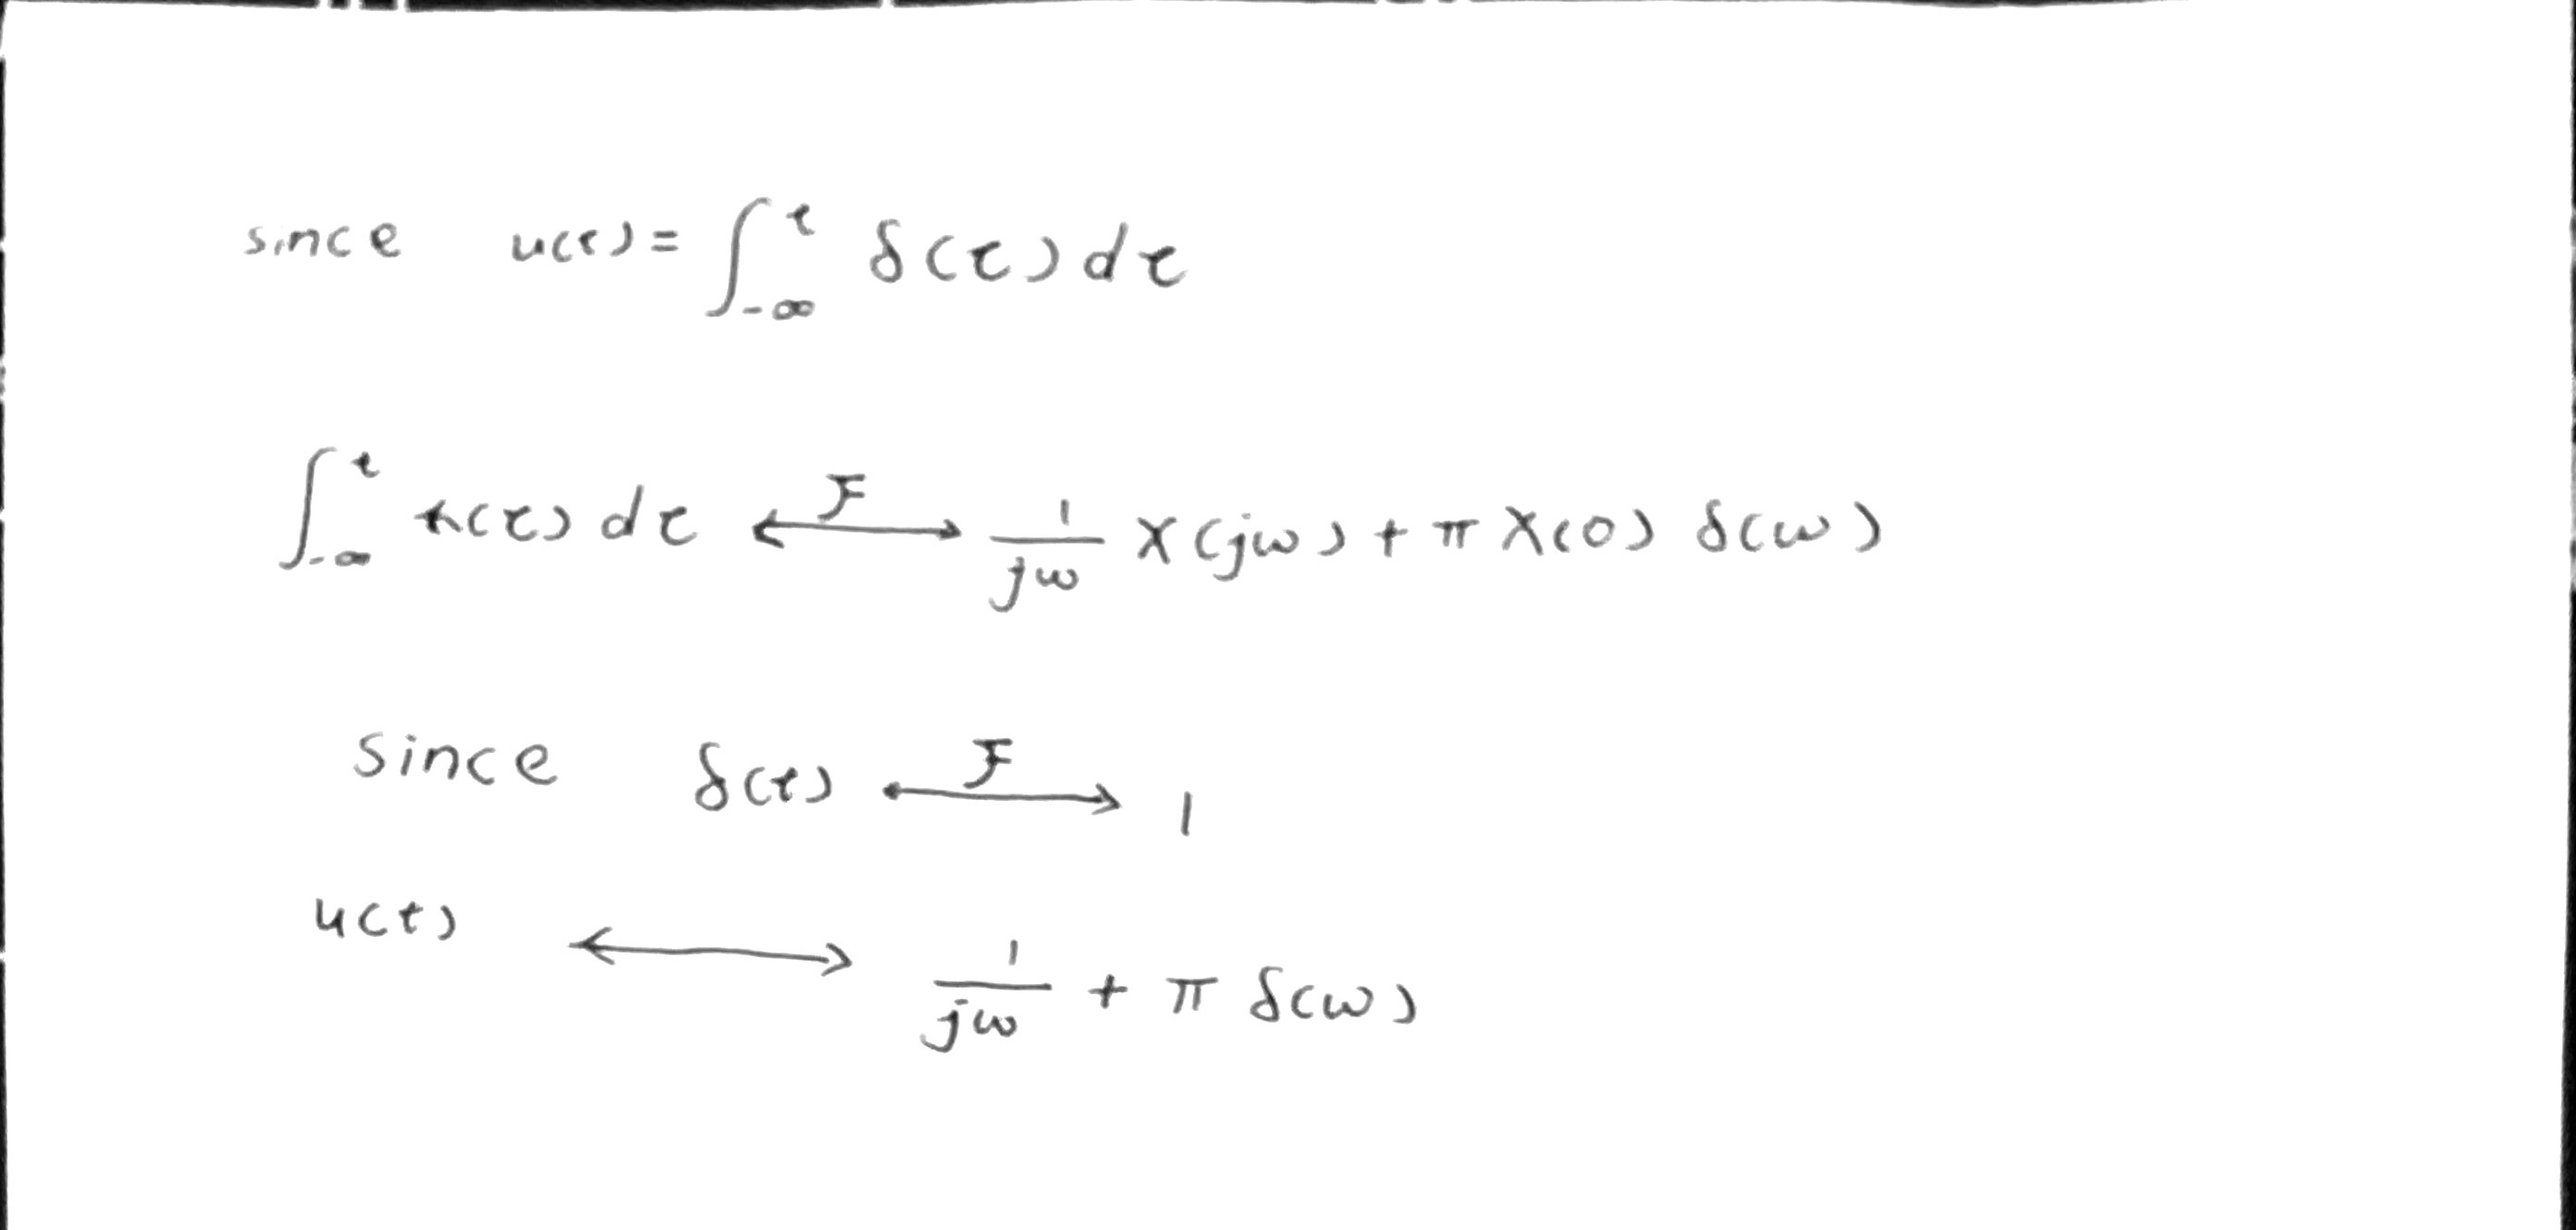 since u(t) = ∫_{-∞}^{t} δ(τ) dτ
∫_{-∞}^{t} x(τ) dτ ←F→ 1/jω X(jω) + π X(0) δ(ω)
since δ(t) ←F→ 1
u(t) ←→ 1/jω + π δ(ω)